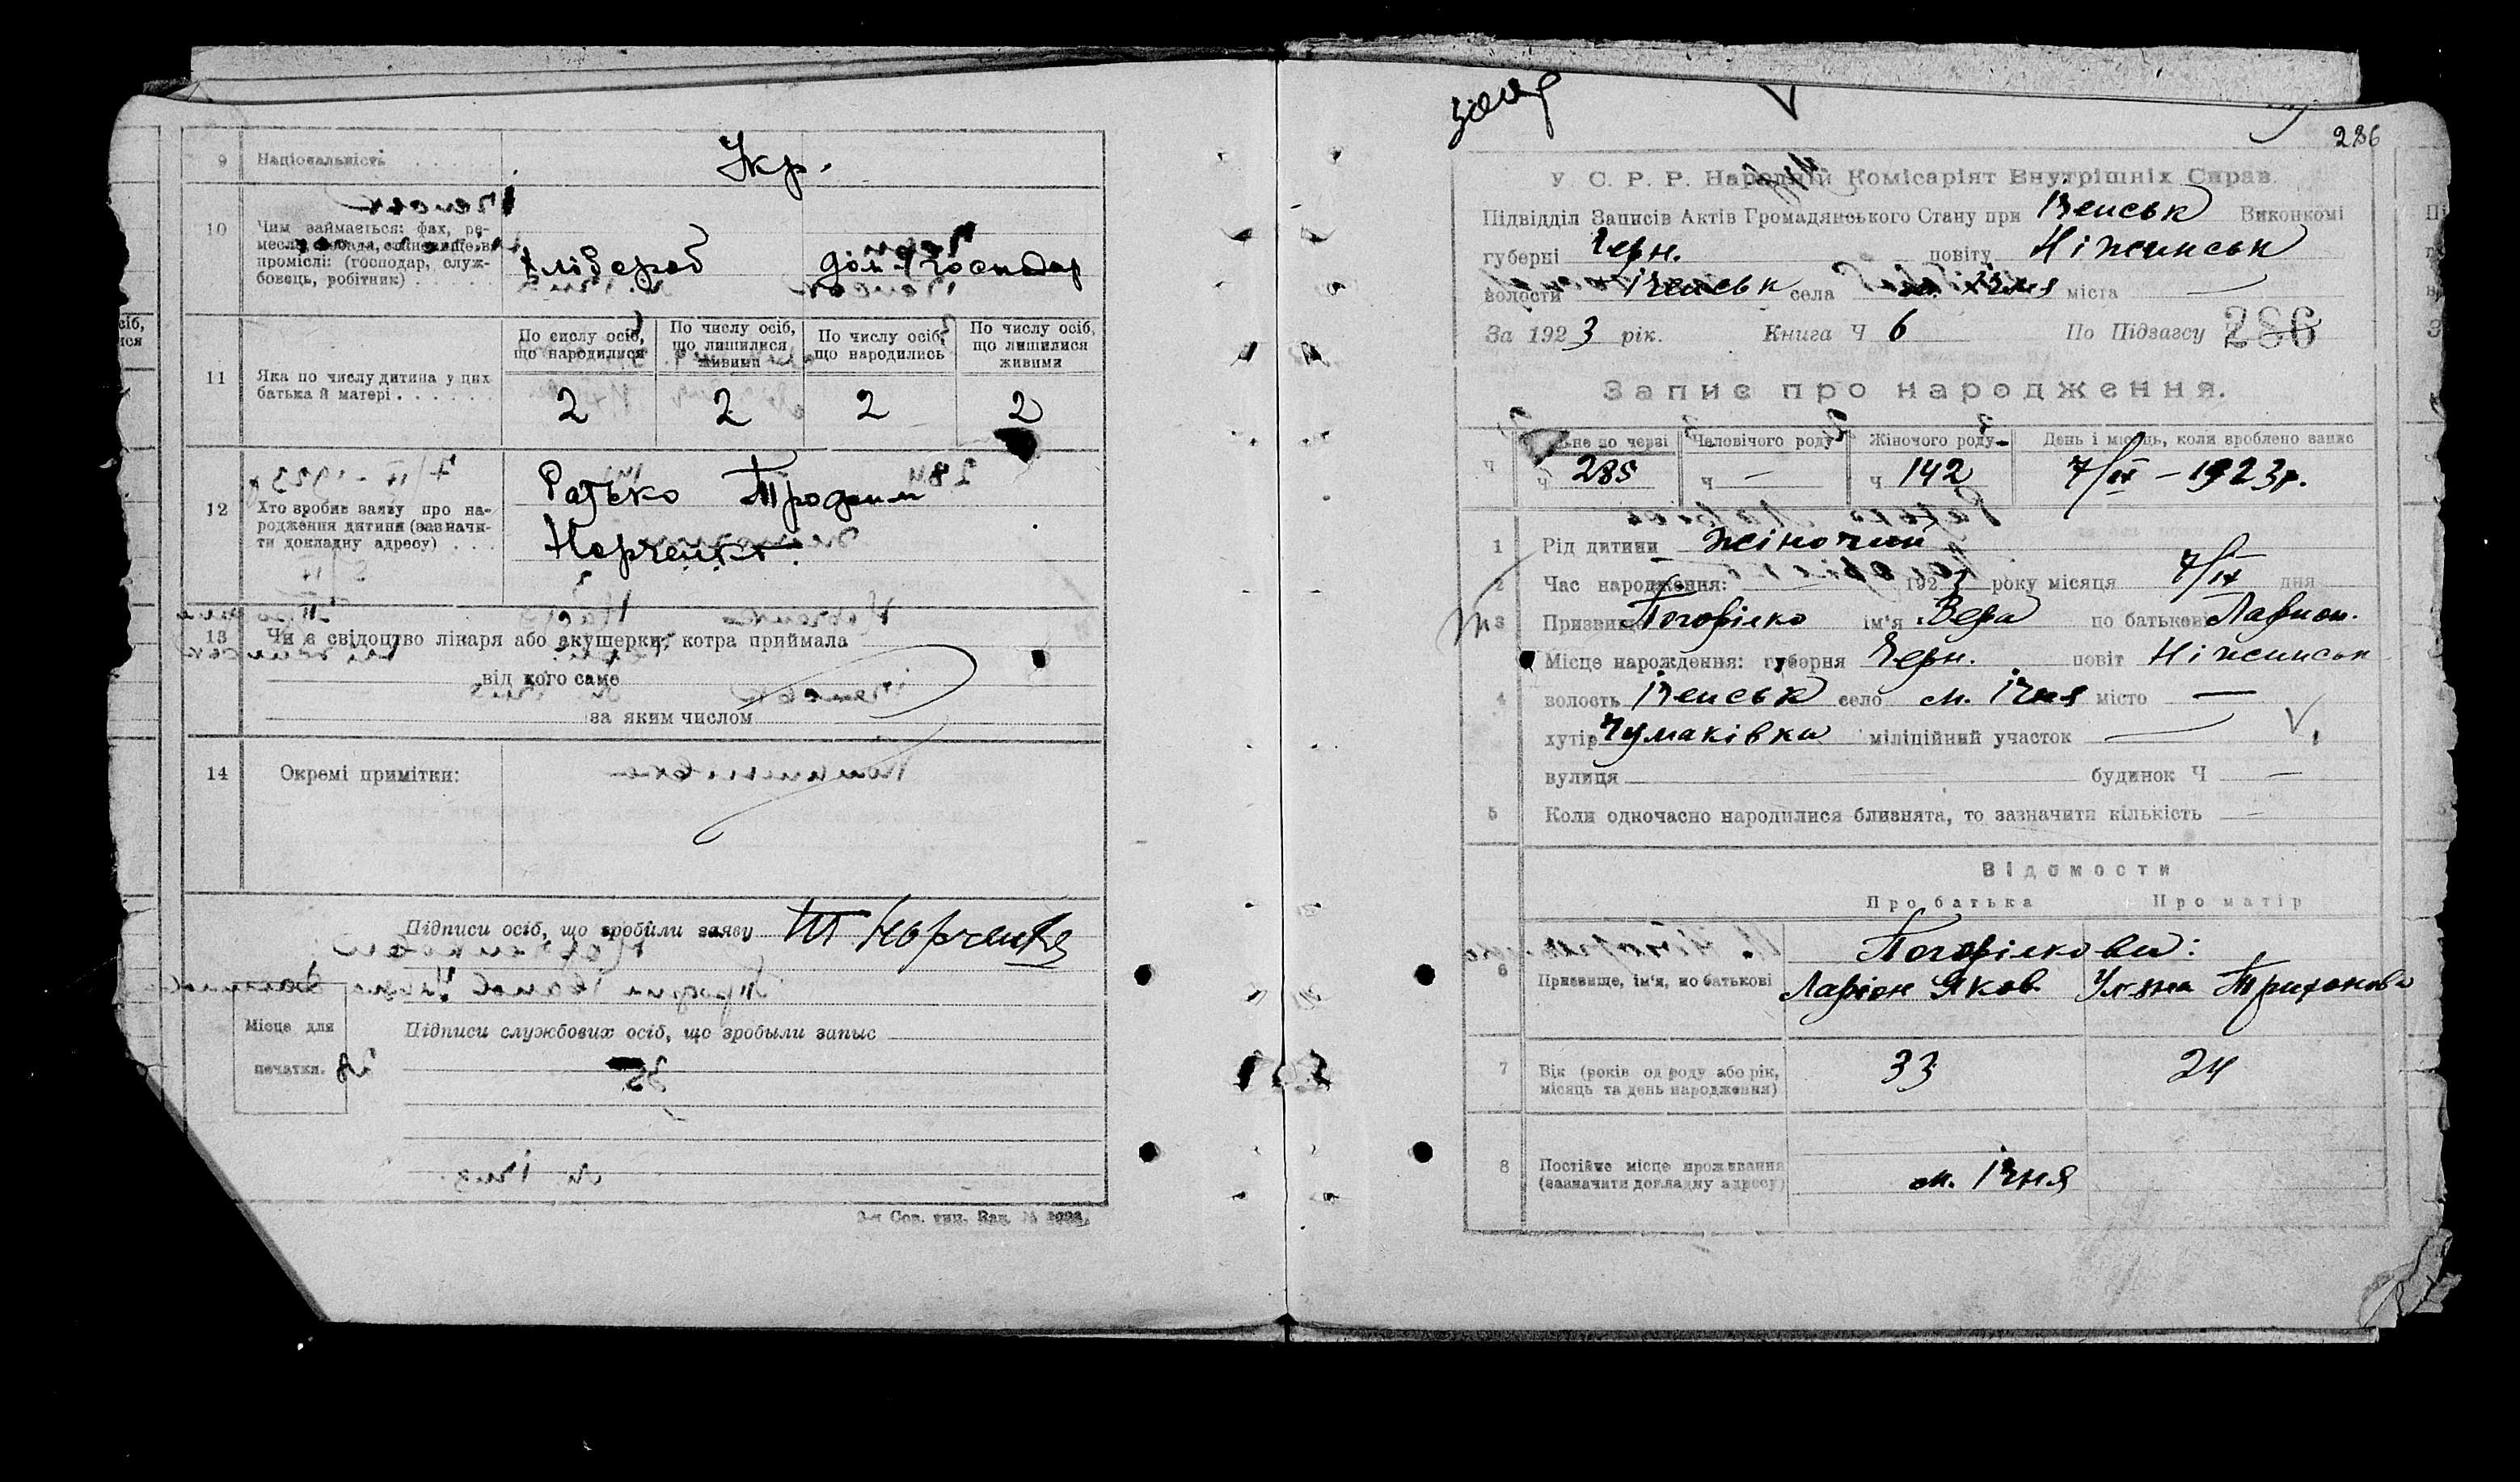 9 Національність . . . . .
Укр.
10 Чим займається: фах, ре-
месло, посада, становище в
промислі: (господар, служ-
бовець, робітник) . . . . .
Хлібороб дом. господар
11 Яка по числу дитина у цих
батька й матері . . . . . .
По числу осіб, що народилися
По числу осіб, що лишилися живими
По числу осіб, що народились
По числу осіб, що лишилися живими
2 2 2 2
12 Хто зробив заяву про на-
родження дитини (зазначи-
ти докладну адресу) . . .
Батько Трофим
Норченко.
13 Чи є свідоцтво лікаря або акушерки, котра приймала
від кого саме
за яким числом
14 Окремі примітки:
Підписи осіб, що зробили заяву Т Норченко
Місце для
печатки.
Підписи службових осіб, що зробыли запыс
286
У. С. Р. Р. Народній Комісаріят Внутрішніх Справ.
Підвідділ Записів Актів Громадянського Стану при Іченськ Виконкомі
губерні Черн. повіту Ніжинськ
волости Іченськ села м. Ічня міста —
За 1923 рік. Книга Ч 6 По Підзагсу Ч 286
Запис про народження.
Ч
Чоловічого роду Жіночого роду День і місяць, коли зроблено запис
ч 285 ч — ч 142 7/IX – 1923р.
1 Рід дитини жіночий
2 Час народження: 1923 року місяця 7/IX дня
3 Призвище Погорілко ім'я Вера по батькові Ларион.
4 Місце нарождення: губерня Черн. повіт Ніжинськ
волость Іченськ село м. Ічня місто —
хутір Чумаківка міліційний участок —
вулиця будинок Ч —
5 Коли одночасно народилися близнята, то зазначити кількість —
Відомости
Про батька Про матір
6 Призвище, ім'я, по батькові
Погорілкови:
Ларіон Яков. Уляна Трифонова
7 Вік (років од роду або рік,
місяць та день народження)
33 24
8 Постійне місце проживання
(зазначити докладну адресу)
м. Ічня